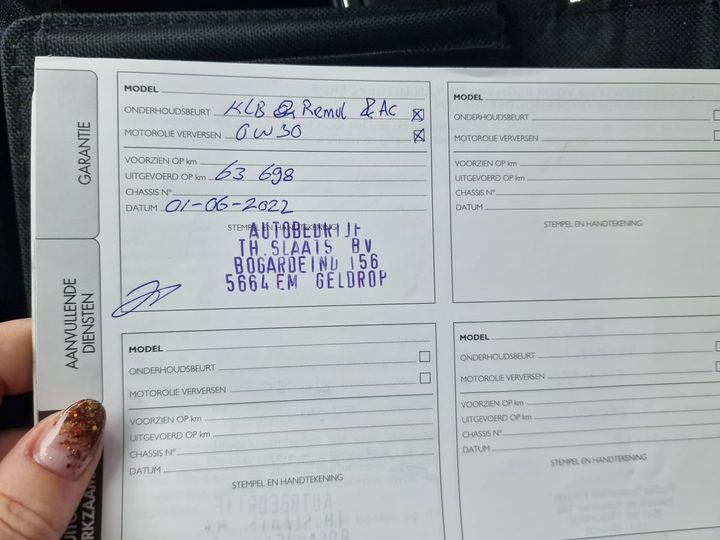 GARANTIE
AANVULLENDE
DIENSTEN
MODEL
ONDERHOUDSBEURT KLB & Remvl & AC
MOTOROLIE VERVERSEN 0W30
VOORZIEN OP km
UITGEVOERD OP km 63 698
CHASSIS N°
DATUM 01-06-2022
STEMPEL EN HANDTEKENING
AUTOBEDRIJF
TH. SLAATS BV
BOGARDEIND 156
5664 EM GELDROP
MODEL
ONDERHOUDSBEURT
MOTOROLIE VERVERSEN
VOORZIEN OP km
UITGEVOERD OP km
CHASSIS N°
DATUM
STEMPEL EN HANDTEKENING
MODEL
ONDERHOUDSBEURT
MOTOROLIE VERVERSEN
VOORZIEN OP km
UITGEVOERD OP km
CHASSIS N°
DATUM
STEMPEL EN HANDTEKENING
MODEL
ONDERHOUDSBEURT
MOTOROLIE VERVERSEN
VOORZIEN OP km
UITGEVOERD OP km
CHASSIS N°
DATUM
STEMPEL EN HANDTEKENING